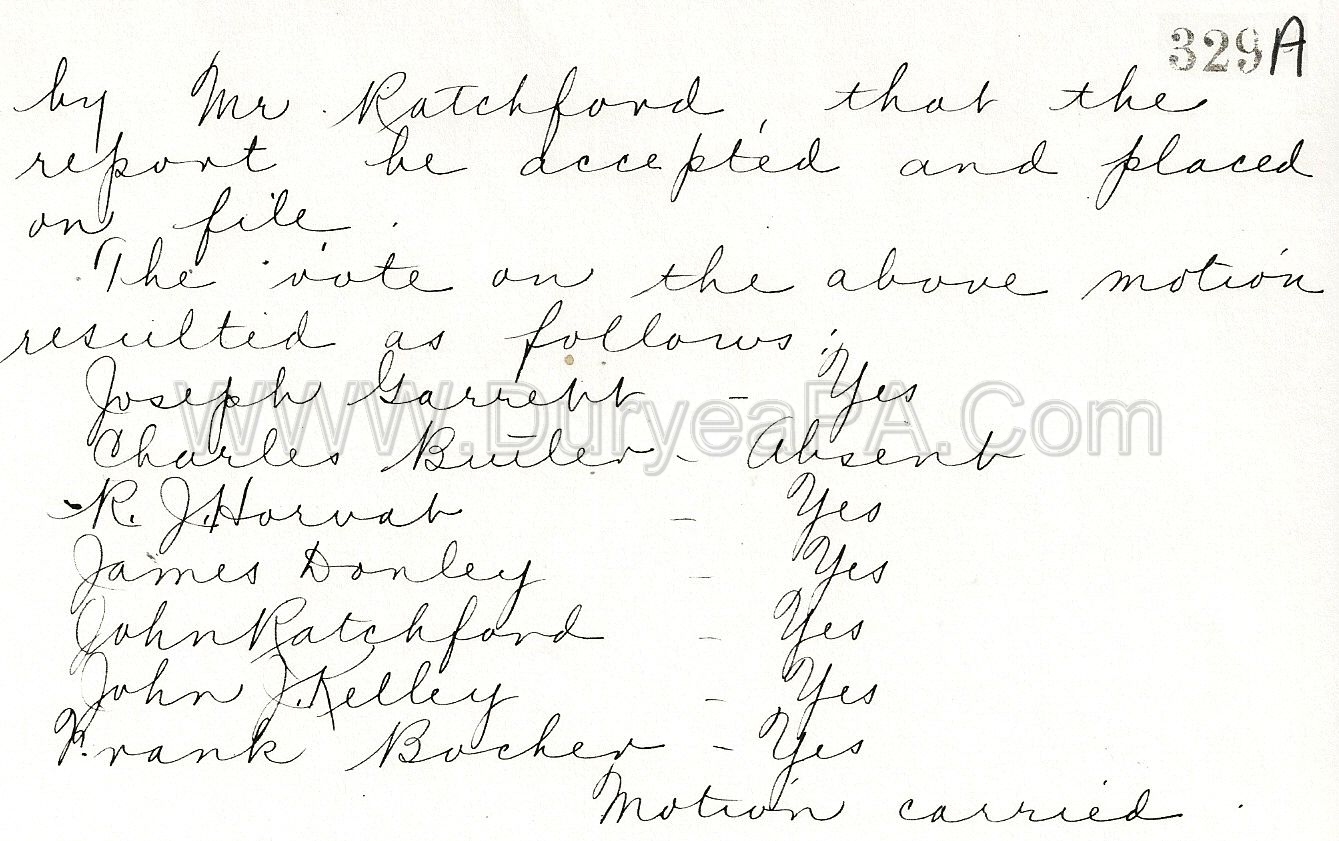 329A
by Mr. Ratchford, that the
report be accepted and placed
on file.
The vote on the above motion
resulted as follows:
Joseph Garrett - Yes
WWW.DuryeaPA.Com
Charles Butler - Absent
R. J. Horvat - Yes
James Donley - Yes
John Ratchford - Yes
John J. Kelley - Yes
Frank Bocher - Yes
Motion carried.